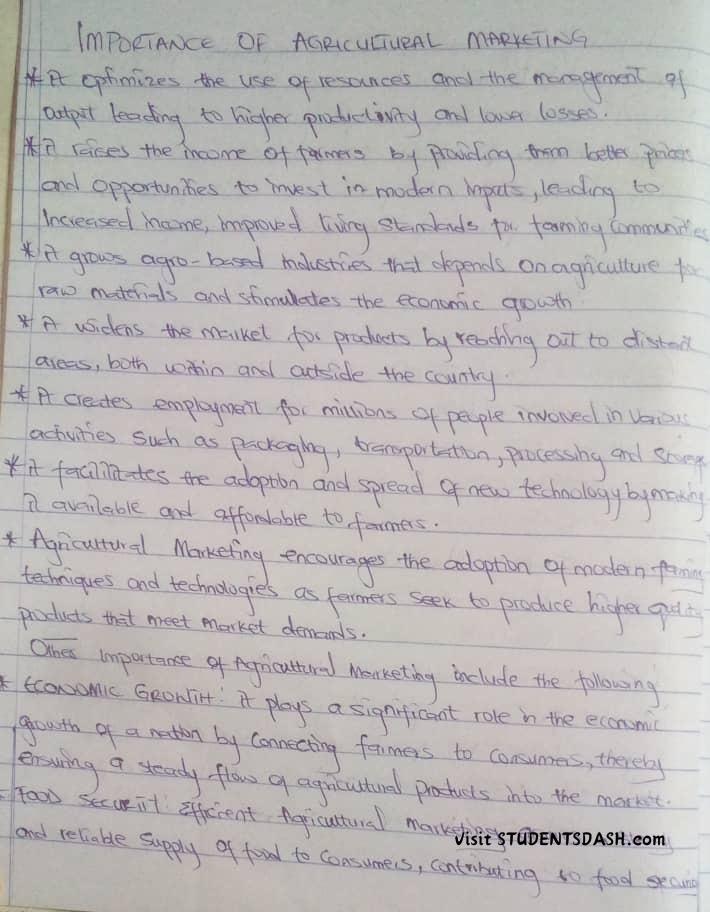 IMPORTANCE OF AGRICULTURAL MARKETING
* It optimizes the use of resources and the management of
output leading to higher productivity and lower losses.
* It raises the income of farmers by providing them better prices
and opportunities to invest in modern inputs, leading to
Increased income, improved living standards for farming communities
* It grows agro-based industries that depends on agriculture for
raw materials and stimulates the economic growth
* It widens the market for products by reaching out to distant
areas, both within and outside the country.
* It creates employment for millions of people involved in various
activities such as packaging, transportation, processing and storage
* It facilitates the adoption and spread of new technology by making
it available and affordable to farmers.
* Agricultural Marketing encourages the adoption of modern farming
techniques and technologies as farmers seek to produce higher quality
products that meet market demands.
Other importance of Agricultural Marketing include the following
* ECONOMIC GROWTH: It plays a significant role in the economic
growth of a nation by connecting farmers to consumers, thereby
ensuring a steady flow of agricultural products into the market.
FOOD SECURITY: Efficient Agricultural
Visit STUDENTSDASH.com
and reliable supply of food to consumers, contributing to food